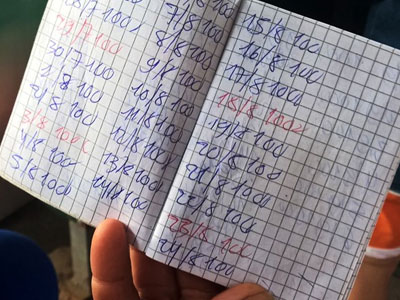 28/7 100
29/7 100
30/7 100
1/8 100
2/8 100
3/8 100
4/8 100
5/8 100
7/8 100
8/8 100
9/8 100
10/8 100
11/8 100
12/8 100
13/8 100
14/8 100
15/8 100
16/8 100
17/8 100
18/8 100
19/8 100
20/8 100
21/8 100
22/8 100
23/8 100
24/8 100